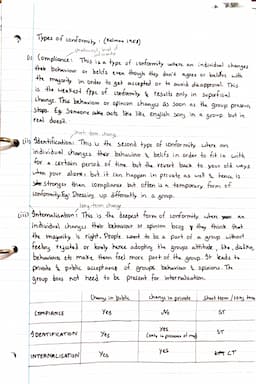 Types of conformity : (Kelman 1958)
(i) Compliance: This is a type of conformity where an individual changes
their behaviour or beliefs even though they don't agree or beliefs with
the majority in order to get accepted or to avoid disapproval. This
is the weakest type of conformity & results only in superficial
change. The behaviour or opinion changes as soon as the group pressure
stops. Eg Someone who acts like like english song in a group but in
real doesn't.
short term change
(ii) Identification: This is the second type of conformity where an
individual changes their behaviour & beliefs in order to fit in with
for a certain period of time but the revert back to your old ways
when your alone. but it can happen in private as well & hence is
stronger than compliance but often is a temporary form of
conformity. Eg: Dressing up differently in a group.
long-term change
(iii) Internalisation: This is the deepest form of conformity when an
individual changes their behaviour or opinion bcoz they think that
the majority is right. People want to be a part of a group without
feeling rejected or lonely hence adopting the groups attitude, like, dislike,
behaviours etc make them feel more part of the group. It leads to
private & public acceptance of groups behaviour & opinions. The
group does not need to be present for internalisation.
Change in public change in private Short term / long term
COMPLIANCE Yes No ST
IDENTIFICATION Yes Yes ST
(only in presence of maj)
INTERNALISATION Yes Yes LT